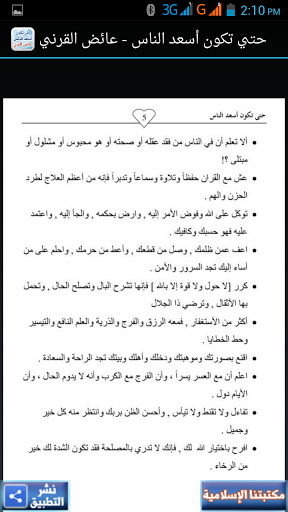 3G G 2:10 PM
حتي تكون أسعد الناس - عائض القرني
حتى تكون أسعد الناس
5
• ألا تعلم أن في الناس من فقد عقله أو صحته أو هو محبوس أو مشلول أو
مبتلى ؟!
• عش مع القران حفظاً وتلاوة وسماعاً وتدبراً فإنه من أعظم العلاج لطرد
الحزن والهم .
• توكل على الله وفوض الأمر إليه , وارض بحكمه , والجأ إليه , واعتمد
عليه فهو حسبك وكافيك .
• اعف عمن ظلمك , وصل من قطعك , وأعط من حرمك , واحلم على من
أساء إليك تجد السرور والأمن .
• كرر [لا حول ولا قوة إلا بالله ] فإنها تشرح البال وتصلح الحال , وتحمل
بها الأثقال , وترضي ذا الجلال
• أكثر من الأستغفار , فمعه الرزق والفرج والذرية والعلم النافع والتيسير
وحط الخطايا .
• اقنع بصورتك وموهبتك ودخلك وأهلك وبيتك تجد الراحة والسعادة .
• اعلم أن مع العسر يسراً , وأن الفرج مع الكرب وأنه لا يدوم الحال , وأن
الأيام دول .
• تفاءل ولا تقنط ولا تيأس , وأحسن الظن بربك وانتظر منه كل خير
وجميل .
• افرح باختيار الله لك , فإنك لا تدري بالمصلحة فقد تكون الشدة لك خير
من الرخاء .
مكتبتنا الإسلامية
نشر
التطبيق